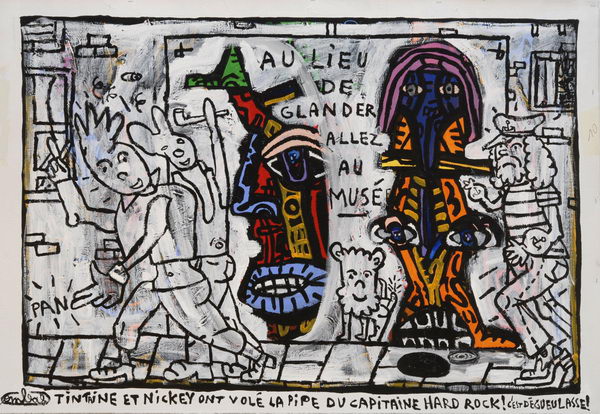 AU LIEU
DE
GLANDER
ALLEZ
AU
MUSÉE
PAN
TINTINE ET NICKEY ONT VOLÉ LA PIPE DU CAPITAINE HARD ROCK! C'EST DÉGUEULASSE!